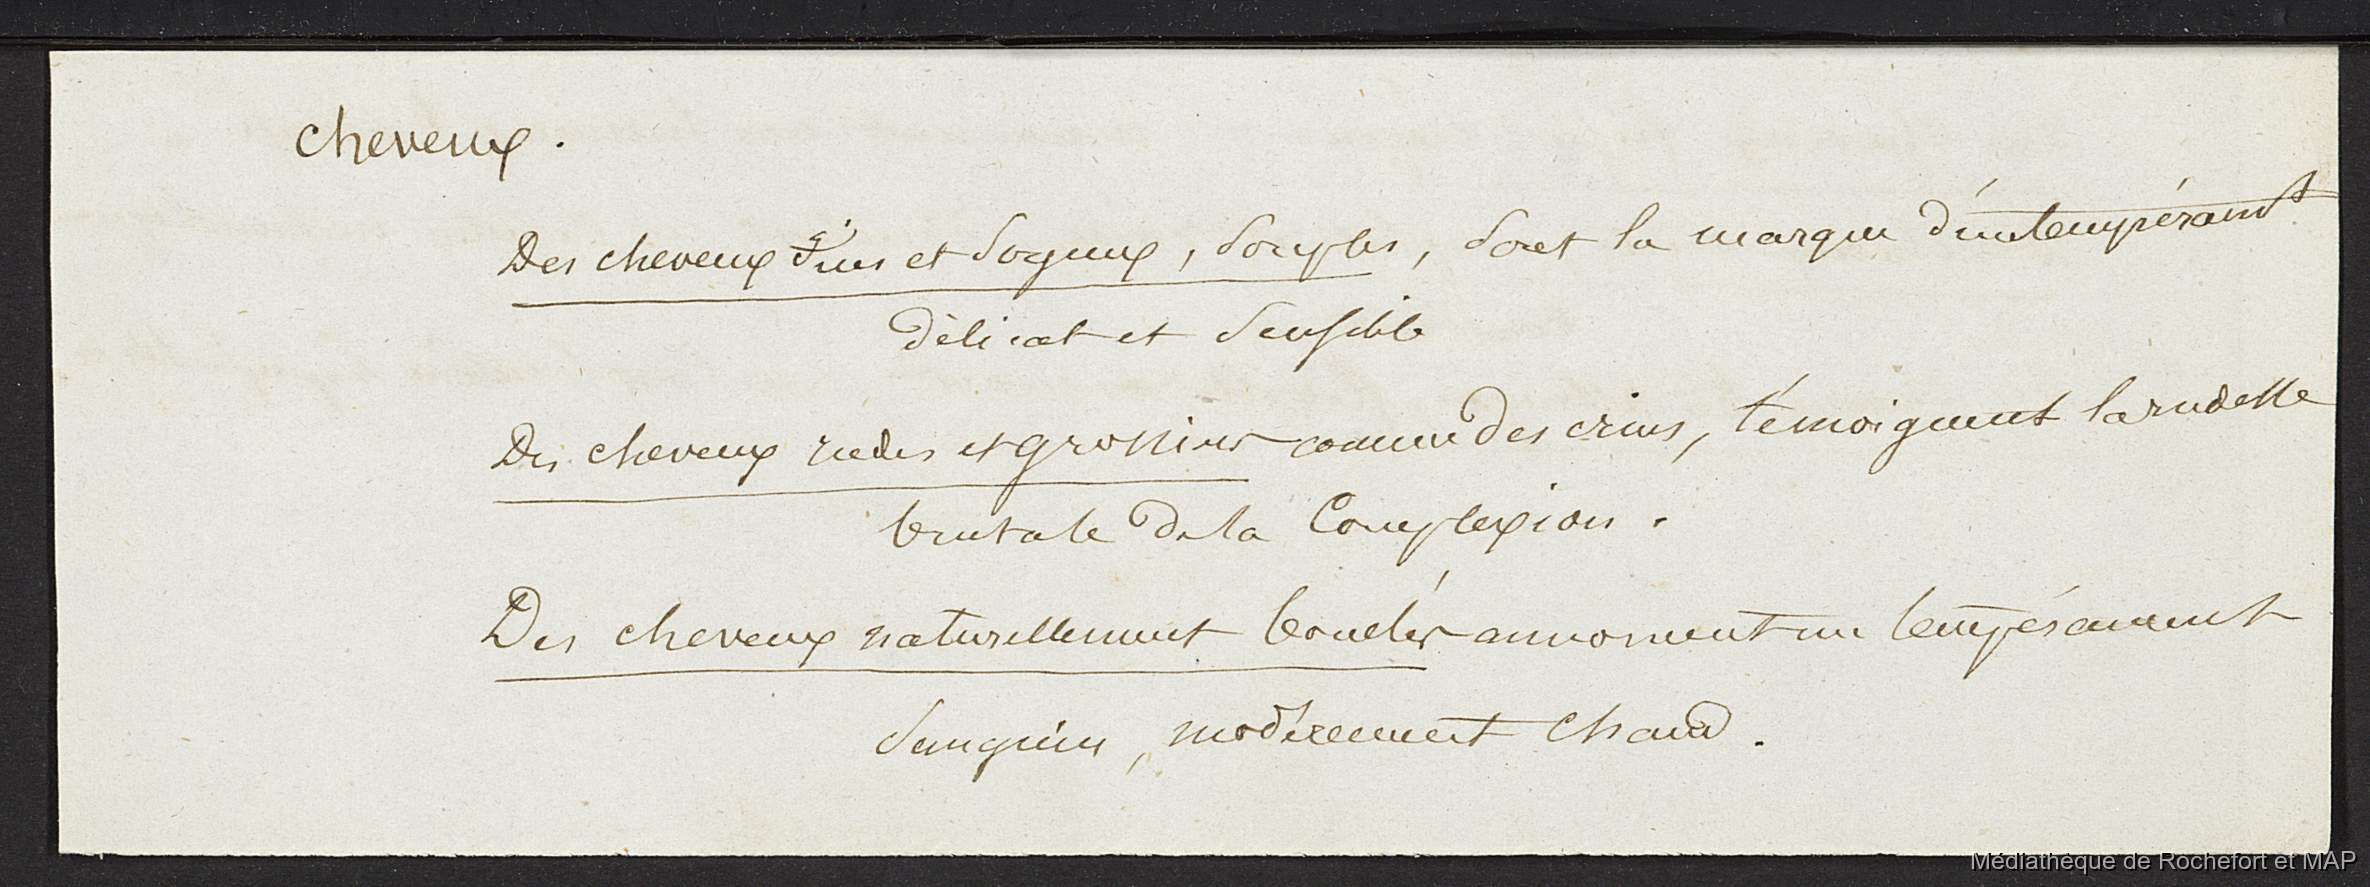 Cheveux.
Des cheveux fins et soyeux, souples, sont la marque d'un tempérament
délicat et sensible
Des cheveux rudes et grossiers comme des crins, témoignent la rudesse
brutale de la Complexion.
Des cheveux naturellement bouclés annoncent un tempérament
sanguin, modérement chaud.
Médiathèque de Rochefort et MAP